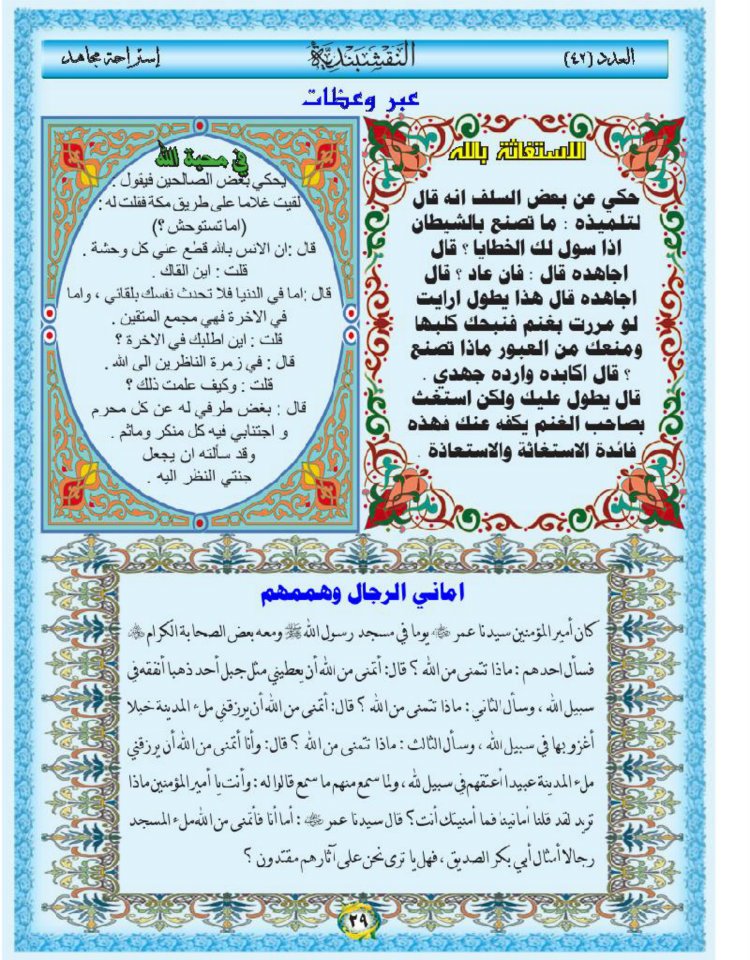 العدد (٤٢)
النقشبندية
إستراحة مجاهد
عبر وعظات
الاستغاثة بالله
حكي عن بعض السلف انه قال
لتلميذه : ما تصنع بالشيطان
اذا سول لك الخطايا ؟ قال
اجاهده قال : فان عاد ؟ قال
اجاهده قال هذا يطول ارايت
لو مررت بغنم فنبحك كلبها
ومنعك من العبور ماذا تصنع
؟ قال اكابده وارده جهدي .
قال يطول عليك ولكن استغث
بصاحب الغنم يكفه عنك فهذه
فائدة الاستغاثة والاستعاذة .
في محبة الله
يحكي بعض الصالحين فيقول .
لقيت غلاما على طريق مكة فقلت له :
(اما تستوحش ؟)
قال :ان الانس بالله قطع عني كل وحشة .
قلت : اين القاك .
قال :اما في الدنيا فلا تحدث نفسك بلقائي ، واما
في الاخرة فهي مجمع المتقين .
قلت : اين اطلبك في الاخرة ؟
قال : في زمرة الناظرين الى الله .
قلت : وكيف علمت ذلك ؟
قال : بغض طرفي له عن كل محرم
و اجتنابي فيه كل منكر وماثم .
وقد سألته ان يجعل
جنتي النظر اليه .
اماني الرجال وهممهم
كان أمير المؤمنين سيدنا عمر ﷺ يوما في مسجد رسول الله ﷺ ومعه بعض الصحابة الكرام ﷺ
فسأل احدهم : ماذا تتمنى من الله ؟ قال: أتمنى من الله أن يعطيني مثل جبل أحد ذهبا أنفقه في
سبيل الله ، وسأل الثاني : ماذا تتمنى من الله ؟ قال: أتمنى من الله أن يرزقني ملء المدينة خيلا
أغزو بها في سبيل الله ، وسأل الثالث : ماذا تتمنى من الله ؟ قال: وأنا أتمنى من الله أن يرزقني
ملء المدينة عبيدا أعتقهم في سبيل لله ، ولما سمع منهم ما سمع قالوا له : وأنت يا أمير المؤمنين ماذا
تريد لقد قلنا أمانينا فما أمنيتك أنت؟ قال سيدنا عمر ﷺ : أما أنا فأتمنى من الله ملء المسجد
رجالا أمثال أبي بكر الصديق ، فهل يا ترى نحن على آثارهم مقتدون ؟
٢٩